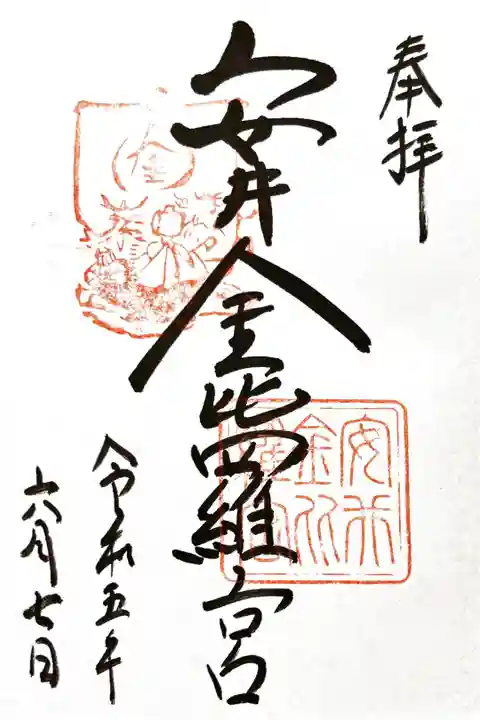 奉拝
安井金比羅宮
令和五年
六月七日
安井
金比
羅宮
金